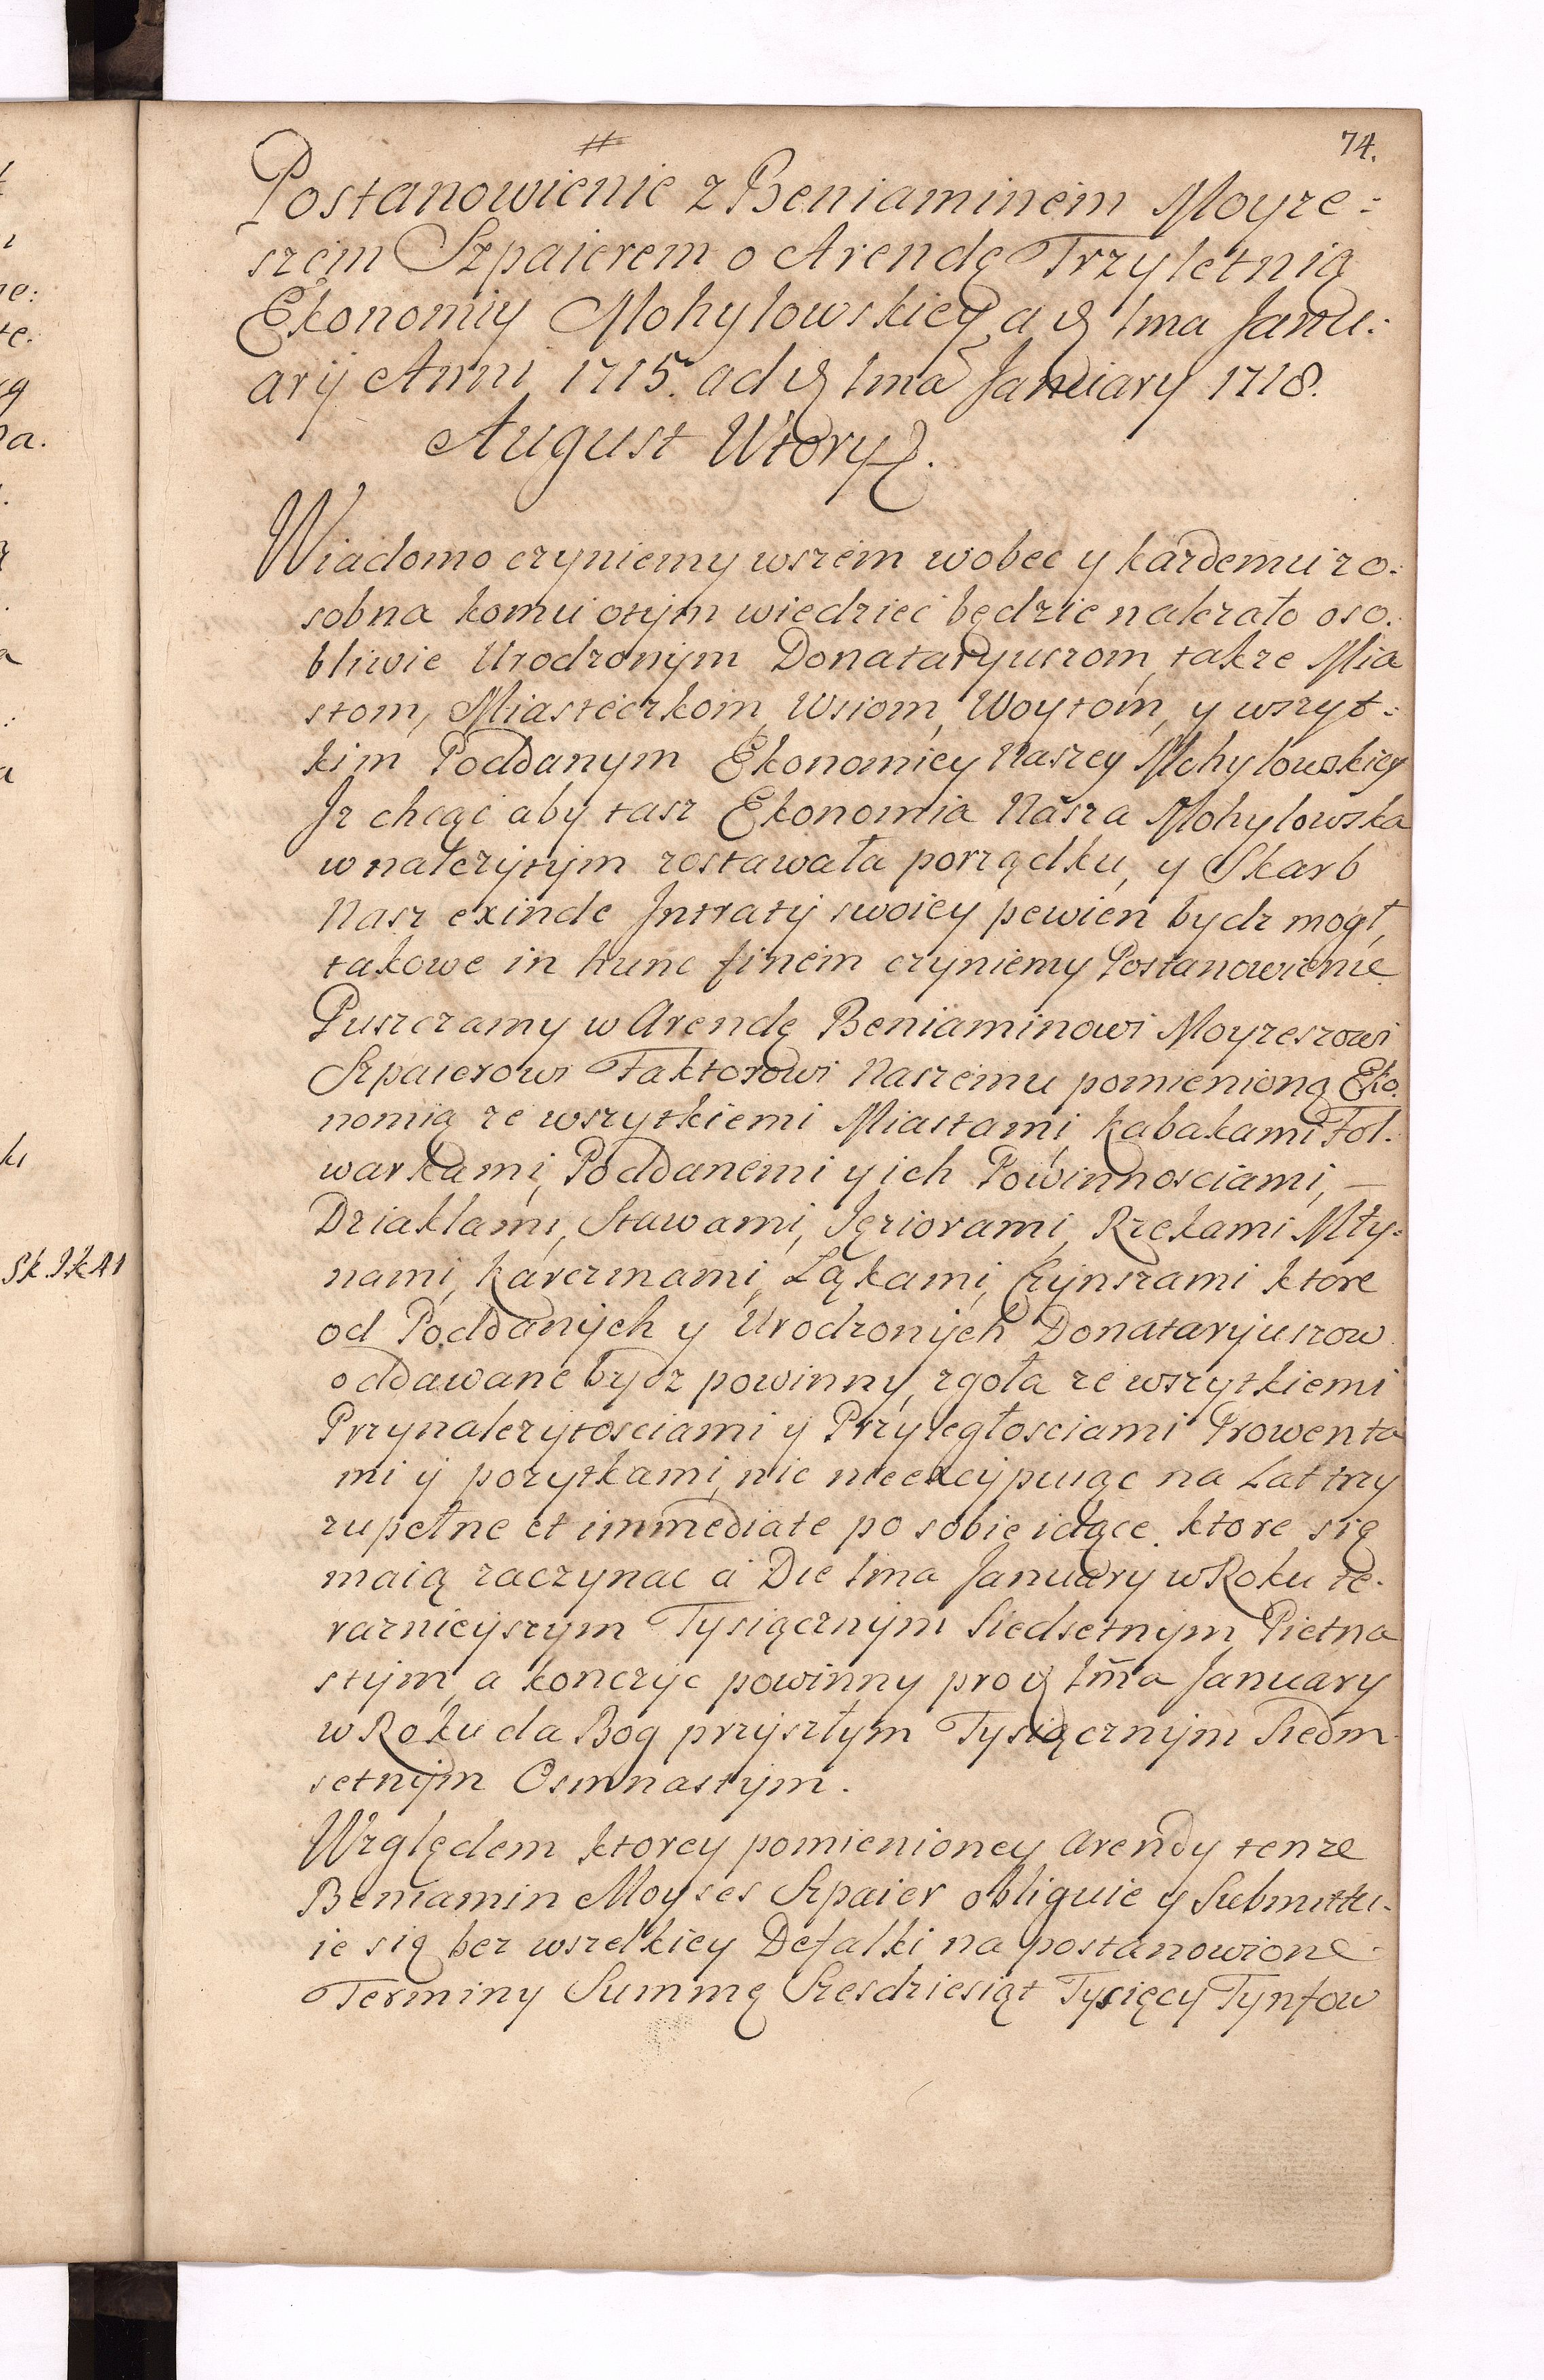 #
74.
Postanowienie z Beniaminem Moyze:
szem Szpaierem o Arendę Trzyletnią
Ekonomiy Mohylowskiey a d 1ma Janu:
arij Anni 1715. ad d 1ma January 1718.
August Wtory.
Wiadomo czyniemy wszem wobec y kazdemu zo:
sobna komu otym wiedzieć będzie nalezało oso:
bliwie Urodzonym Donataryuszom, takze Mia
stom, Miasteczkom, Wsiom, Woytom, y wszyt:
kim Poddanym Ekonomiey Naszey Mohylowskiey
Jz chcąc aby tasz Ekonomia Nasza Mohylowska
w nalezytym zostawała porządku, y Skarb
Nasz exinde Jntraty swoiey pewien bydz mogł,
takowe in hunc finem czyniemy Postanowienie
Puszczamy w Arendę Beniaminowi Moyzeszowi
Szpaierowi Faktorowi Naszemu pomienioną Eko:
nomią ze wszytkiemi Miastami, kabakami Fol:
warkami, Poddanemi y ich Powinnosciami, —
Dziakłami, Stawami, Jęziorami, Rzekami Mły:
nami, Karczmami, Łąkami, Czynszami ktore
od Poddanych y Urodzonych Donataryuszow
oddawane bydz powinny, zgoła ze wszytkiemi
Przynalezytosciami y Przyległosciami Prowenta
mi y pozytkami, nic nieexcypuiąc na Lat trzy
zupełne et immediate po sobie idące, ktore się
maią zaczynac a Die 1ma January w Roku te:
raznieyszym Tysiącznym Siedsetnym Pietna
stym, a konczyc powinny pro d 1ma January
w Roku da Bog przyszłym Tysiącznym Siedm
setnym Osmnastym.
Względem ktorey pomienioney Arendy tenze
Beniamin Moyses Szpaier obliguie y Submittu:
ie się bez wszelkiey Defalki na postanowione
Terminy Summę Szesdziesiąt Tysięcy Tynfow
Sk. J. k 41